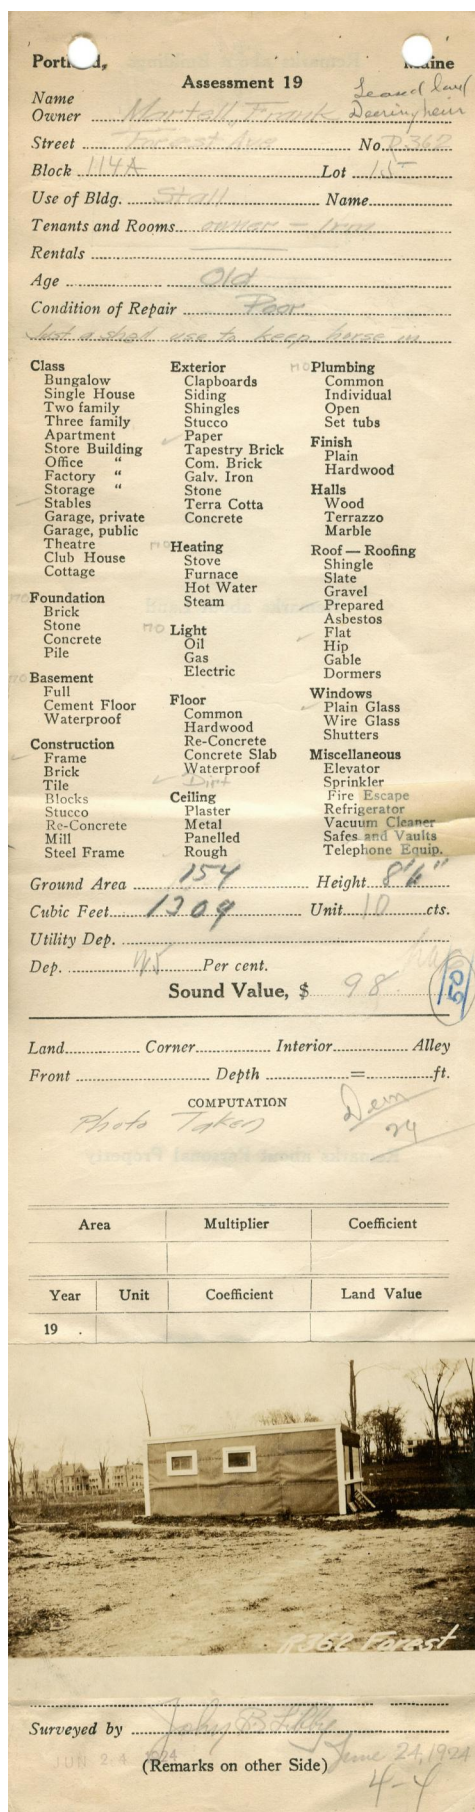 Portland, Maine
Assessment 19
Leased land
Deering heirs
Name
Owner Martell, Frank
Street Forest Ave No. R362
Block 114A Lot 15
Use of Bldg. Stall Name
Tenants and Rooms owner - 1 room
Rentals
Age Old
Condition of Repair Poor
Just a shed use to keep horse in
Class
Bungalow
Single House
Two family
Three family
Apartment
Store Building
Office "
Factory "
Storage "
✓ Stables
Garage, private
Garage, public
Theatre
Club House
Cottage
no Foundation
Brick
Stone
Concrete
Pile
no Basement
Full
Cement Floor
Waterproof
Construction
✓ Frame
Brick
Tile
Blocks
Stucco
Re-Concrete
Mill
Steel Frame
Exterior
Clapboards
Siding
Shingles
Stucco
✓ Paper
Tapestry Brick
Com. Brick
Galv. Iron
Stone
Terra Cotta
Concrete
no Heating
Stove
Furnace
Hot Water
Steam
no Light
Oil
Gas
Electric
Floor
Common
Hardwood
Re-Concrete
Concrete Slab
Waterproof
✓ Dirt
Ceiling
Plaster
Metal
Panelled
✓ Rough
no Plumbing
Common
Individual
Open
Set tubs
Finish
Plain
Hardwood
Halls
Wood
Terrazzo
Marble
Roof — Roofing
Shingle
Slate
Gravel
✓ Prepared
Asbestos
✓ Flat
Hip
Gable
Dormers
Windows
✓ Plain Glass
Wire Glass
Shutters
Miscellaneous
Elevator
Sprinkler
Fire Escape
Refrigerator
Vacuum Cleaner
Safes and Vaults
Telephone Equip.
Ground Area 154 Height 8'6"
Cubic Feet 1309 Unit 10 cts.
Utility Dep.
Dep. Per cent.
Sound Value, $ 98 50
Land Corner Interior Alley
Front Depth = ft.
COMPUTATION
Photo Taken
24
Area Multiplier Coefficient
Year Unit Coefficient Land Value
19 .
R362 Forest
Surveyed by John B Libby
JUN 24 1924 June 24, 1924
(Remarks on other Side)
4-4